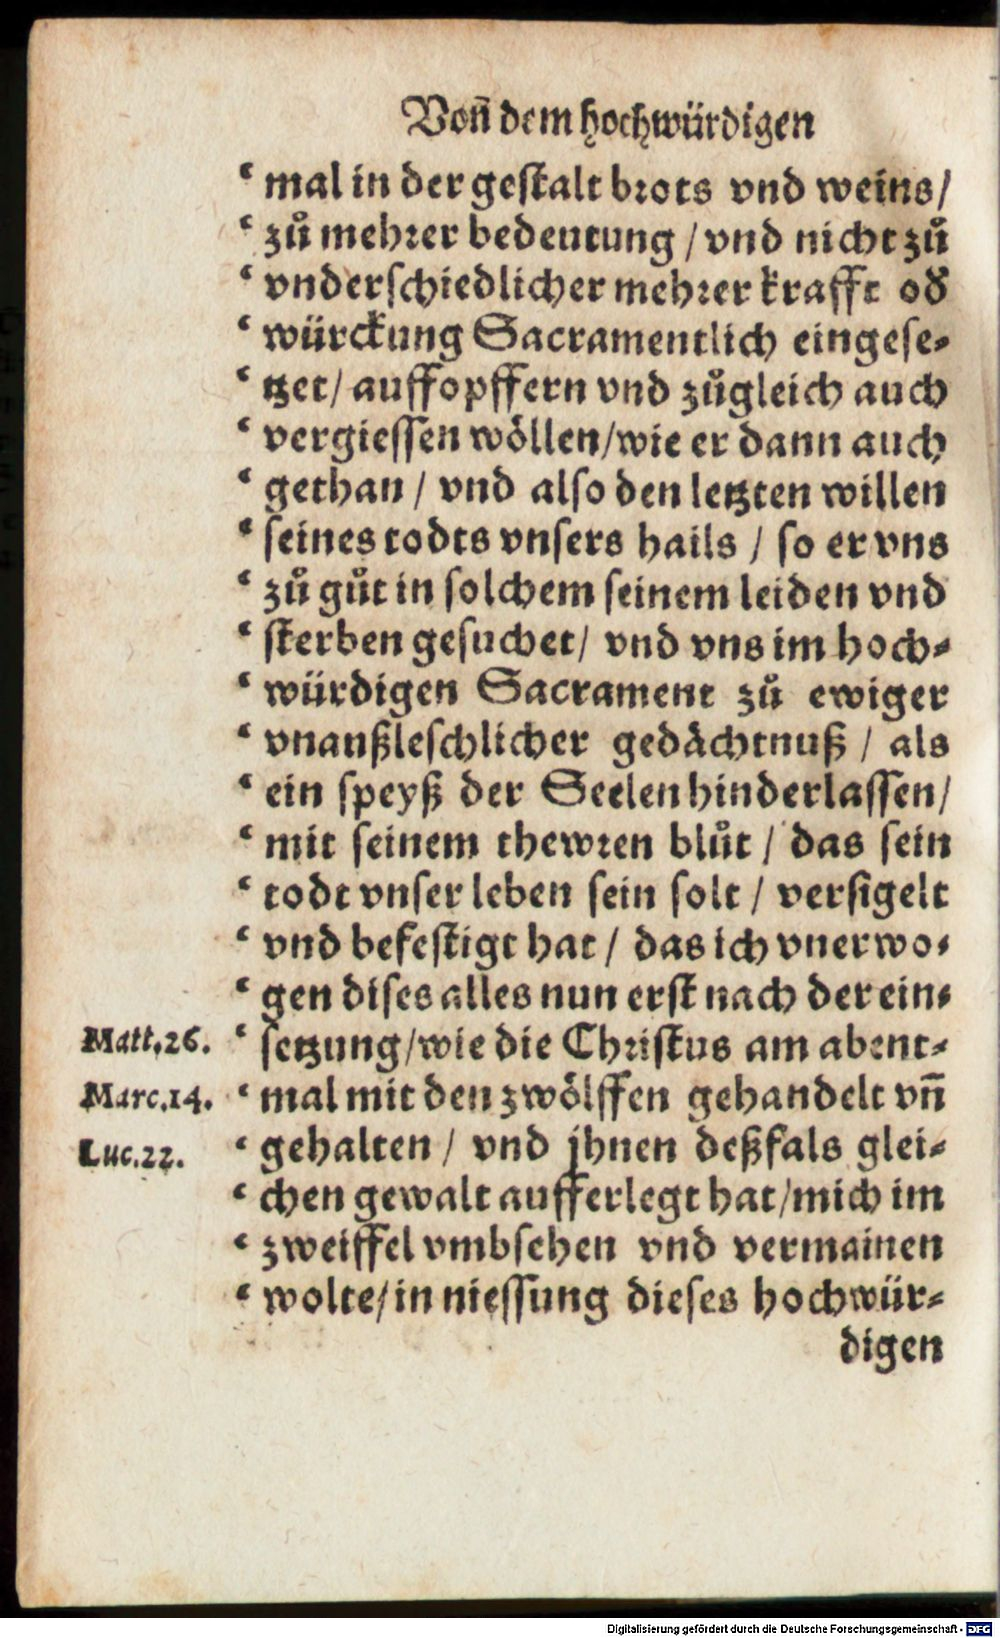 Von̄ dem hochwürdigen
‘ mal in der gestalt brots vnd weins/
‘ zů mehrer bedeutung / vnd nicht zů
‘ vnderschiedlicher mehrer krafft od̕
‘ würckung Sacramentlich eingese-
‘ tzet / auffopffern vnd zůgleich auch
‘ vergiessen wöllen/wie er dann auch
‘ gethan / vnd also den letzten willen
‘ seines todts vnsers hails / so er vns
‘ zů gůt in solchem seinem leiden vnd
‘ sterben gesuchet/ vnd vns im hoch-
‘ würdigen Sacrament zů ewiger
‘ vnaußleschlicher gedächtnuß / als
‘ ein speyß der Seelen hinderlassen/
‘ mit seinem thewren blůt / das sein
‘ todt vnser leben sein solt / versigelt
‘ vnd befestigt hat / das ich vnerwo-
‘ gen dises alles nun erst nach der ein-
Matt.26. ‘ setzung/wie die Christus am abent-
Marc.14. ‘ mal mit den zwölffen gehandelt vn̄
Luc.22. ‘ gehalten / vnd jhnen deßfals glei-
‘ chen gewalt aufferlegt hat/mich im
‘ zweiffel vmbsehen vnd vermainen
‘ wolte/in niessung dieses hochwür-
digen
Digitalisierung gefördert durch die Deutsche Forschungsgemeinschaft - DFG